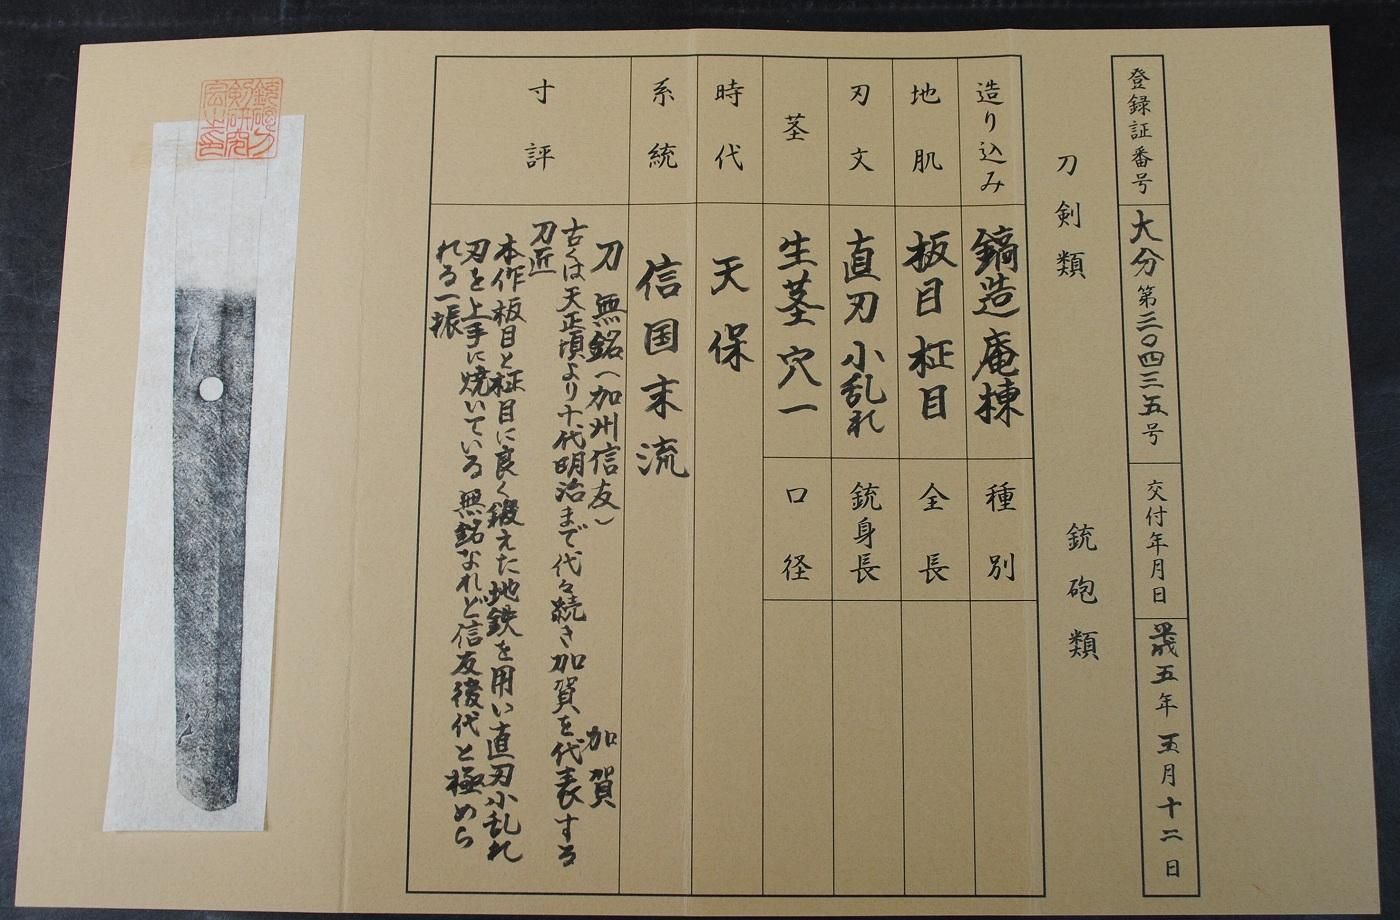 登録証番号 大分第三〇四三五号 交付年月日 平成五年五月十二日
刀剣類 銃砲類
造り込み 鎬造庵棟 種別
地肌 板目柾目 全長
刃文 直刃小乱れ 銃身長
茎 生茎穴一 口径
時代 天保
系統 信国末流
寸評
刀 無銘(加州信友) 加賀
古くは天正頃より十代明治まで代々続き加賀を代表する
刀匠
本作板目と柾目に良く鍛えた地鉄を用い直刃小乱れ
刃を上手に焼いている 無銘なれど信友後代と極めら
れる一振